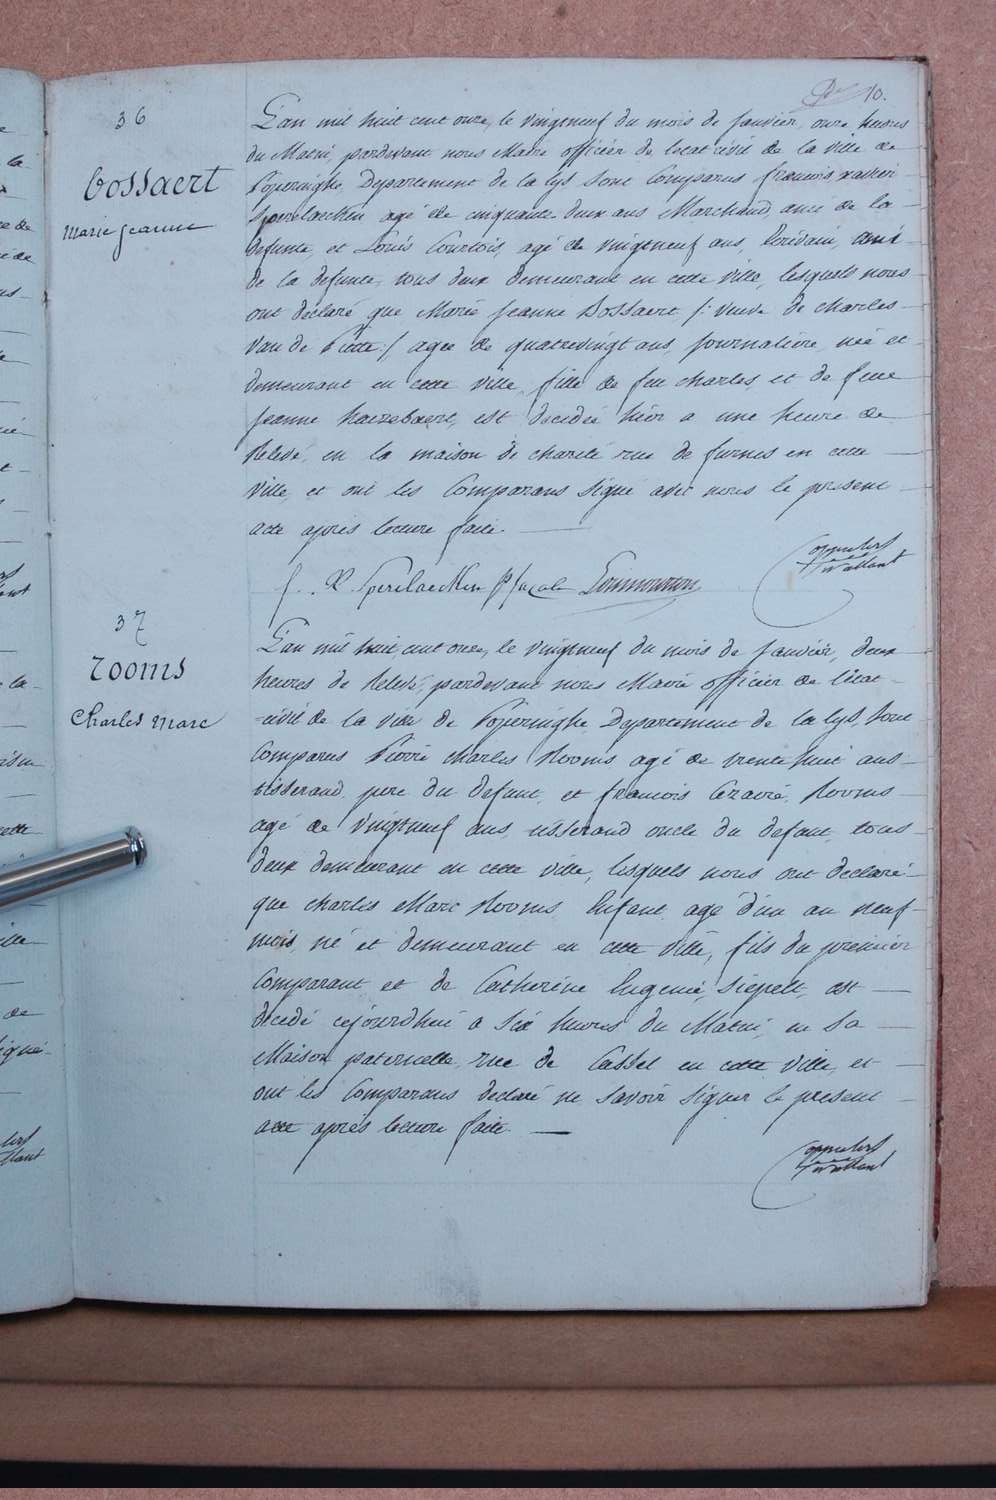 10.
36
Bossaert
Marie Jeanne
L'an mil huit cent onze, le vingtneuf du mois de Janvier, onze heures
du Matin, pardevant nous Maire officier de l'etat civil de la ville de
Poperinghe, Departement de la Lys sont Comparus francois xavier
Sperelaecken agé de cinquante deux ans Marchand, ami de la
defunte, et Louis Courtois, agé de vingtneuf ans, Ecrivain, ami
de la defunte, tous deux demeurant en cette ville, lesquels nous
ont declaré que Marie Jeanne Bossaert /: veuve de charles
van de Piette :/ agee de quatrevingt ans, journaliere, née et
demeurant en cette ville, fille de feu charles, et de feue
Jeanne haezebaert, est decedée hier a une heure de
Relevé, en la maison de charité rue de furnes en cette
ville, et ont les Comparans signé avec nous le present
acte après lecture faite.
f. X. Sperelaecken
37
Rooms
Charles Marc
L'an mil huit cent onze, le vingtneuf du mois de Janvier, deux
heures de Relevé, pardevant nous Maire officier de l'etat
civil de la ville de Poperinghe, Departement de la Lys, sont
Comparus Pierre charles Rooms, agé de trente huit ans
tisserand, pere du defunt, et francois Rooms
agé de vingtneuf ans, tisserand oncle du defunt, tous
deux demeurant en cette ville, lesquels nous ont declaré
que charles Marc Rooms, Enfant agé d'un an neuf
mois, né et demeurant en cette ville, fils du premier
Comparant et de Catherine Eugenie Siepelt, est
decedé cejourdhui a six heures du Matin, en sa
Maison paternelle, rue de Cassel en cette ville, et
ont les Comparans declaré ne savoir signer le present
acte après lecture faite.